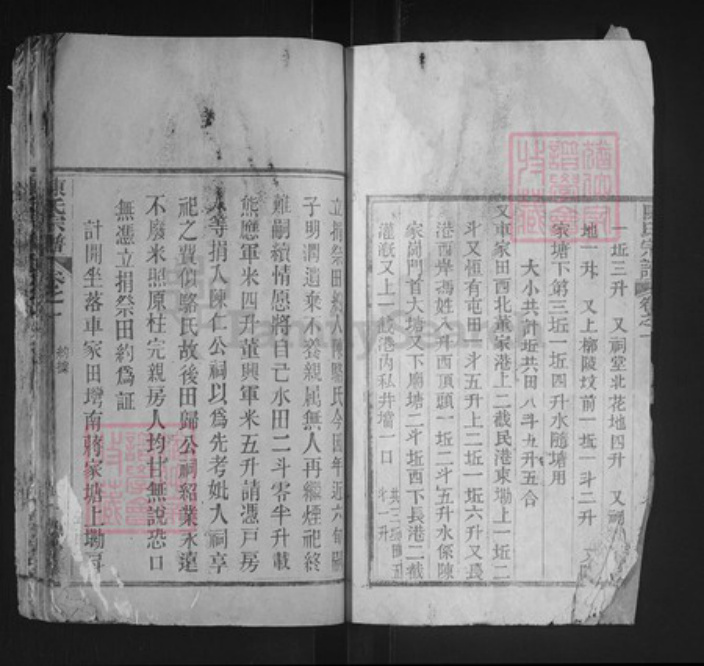 一坵三升　又祠堂北花地四升　又
地一升　又上廓陵坟前一坵一斗二升
家塘下第三坵一坵四升水隨塘用
大小共計坵共田八斗九升五合
又車家田西北董家港上二截民港東墈上一坵二
斗又恒有屯田一斗五升上二坵一坵六升又長
港西岸馮姓人升西頂頭一坵二斗五升水係陳
家崗門首大塘又下廟塘二斗坵西下長港二截
灌溉又上一截港內私井壋一口
斗一升
立捐祭田約人陳駱氏今因年近六旬
子明潤過棄不發親屬無人再繼煙祀終
難嗣續情愿將自己水田二斗零半升載
熊應軍米四升董興軍米五升請憑戶房
人等捐入陳仁公祠以為先考妣入祠享
祀之費似駱氏故後田歸公祠紹業永遠
不廢米照原柱完親房人均甘無說恐口
無憑立捐祭田約為証
計開坐落車家田塆南蔣家塘上墈
陳氏宗譜　卷之一　約據